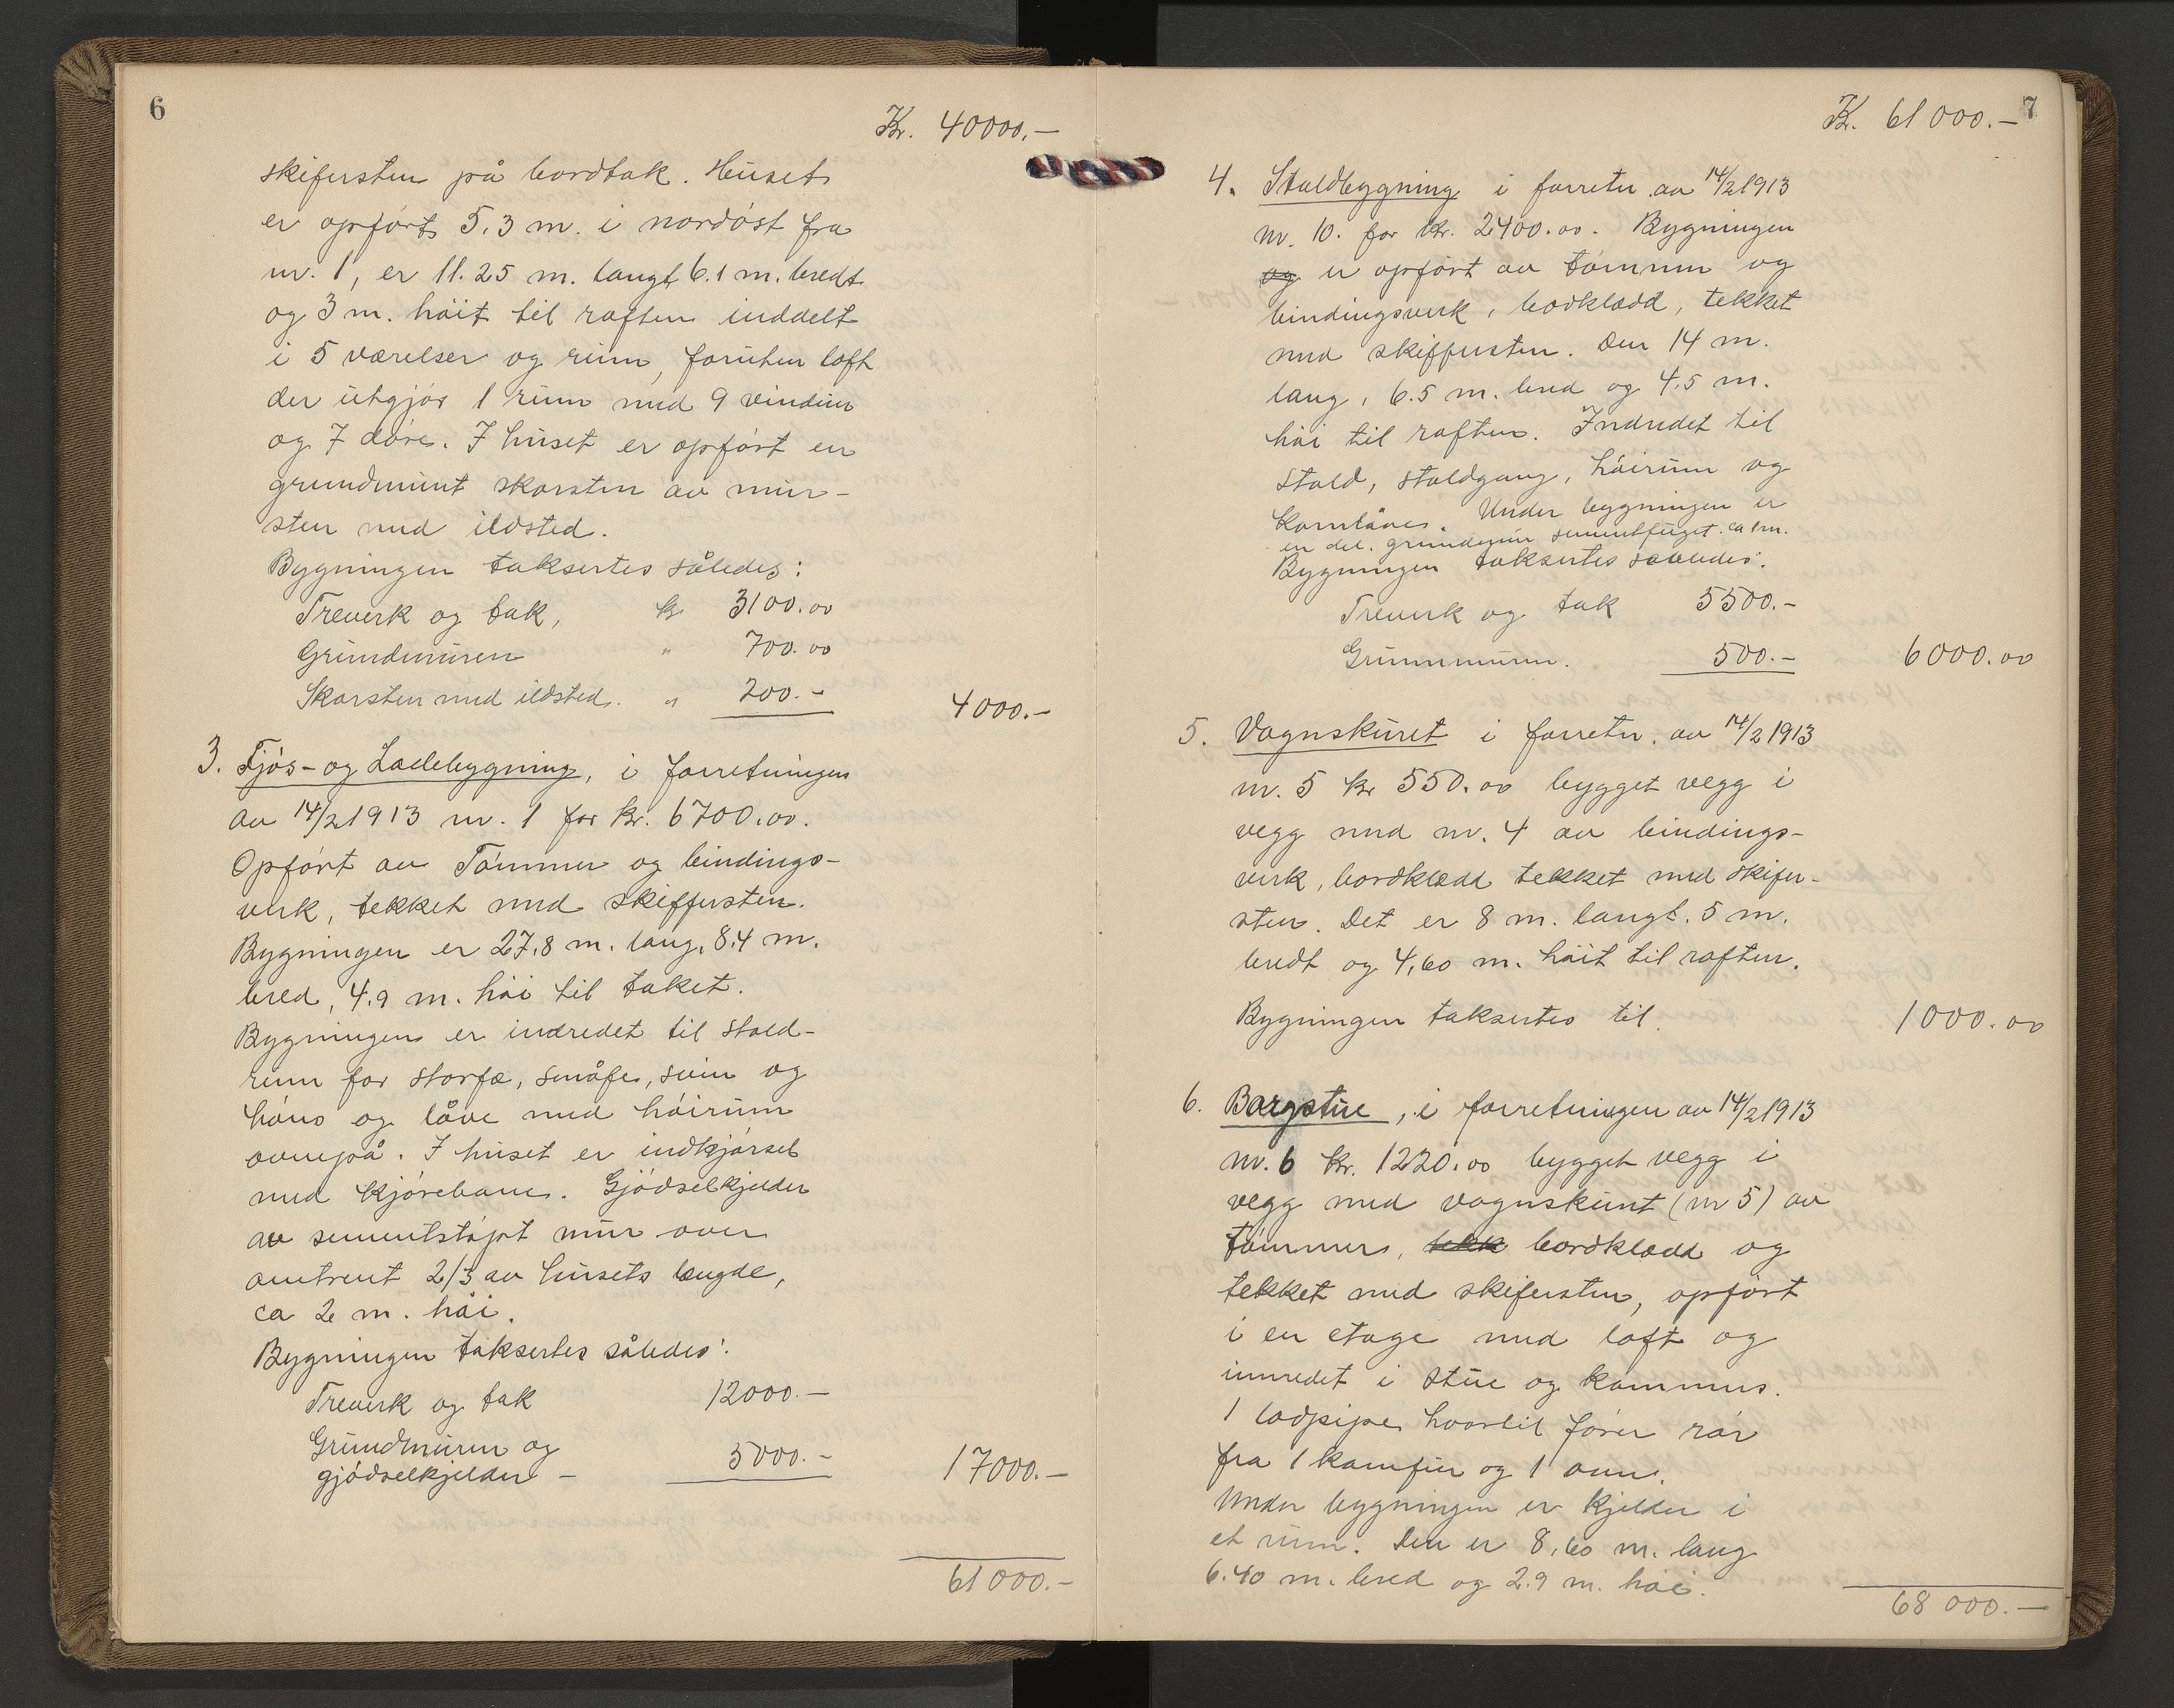 6
Kr. 40000.—
skifersten på bordtak. Huset
er opført 5.3 m. i nordøst fra
nr. 1, er 11.25 m. langt 6.1 m. bredt
og 3 m. høit til raften inddelt
i 5 værelser og rum, foruten loft
der utgjør 1 rum med 9 vinduer
og 7 døre. I huset er opført en
grundmurt skorsten av mur-
sten med ildsted.
Bygningen taksertes således:
Treverk og tak, kr 3100.00
Grundmuren " 700.00
Skorsten med ildsted. " 200.— 4000.—
3. Fjøs- og Ladebygning, i forretningen
av 14/2 1913 nr. 1 for kr. 6700.00.
Opført av Tømmer og bindings-
verk, tekket med skiffersten.
Bygningen er 27,8 m. lang, 8,4 m.
bred, 4.9 m. høi til taket.
Bygningen er indredet til stald-
rum for storfæ, småfe, svin og
høns og låve med høirum
ovenpå. I huset er indkjørsel
med kjørebane. Gjødselkjelder
av sementstøpt mur over
omtrent 2/3 av husets længde,
ca 2 m. høi.
Bygningen taksertes således:
Treverk og tak 12000.—
Grundmuren og
gjødselkjelder — 5000.— 17000.—
61000.—
7
Kr. 61000.—
4. Staldbygning i forretn. av 14/2 1913
nr. 10. for kr. 2400.00. Bygningen
og er opført av tømmer og
bindingsverk, bordklædd, tekket
med skiffersten. Den 14 m.
lang, 6.5 m. bred og 4.5 m.
høi til raften. Indredet til
stald, staldgang, høirum og
Kornlåve. Under bygningen er
en del. grundmur sementfuget. ca 1 m.
Bygningen taksertes således:
Treverk og tak 5500.—
Grunnmuren. 500.— 6000.00
5. Vognskuret i forretn. av 14/2 1913
nr. 5 kr 550.00 bygget vegg i
vegg med nr. 4 av bindings-
verk, bordklædd tekket med skifer-
sten. Det er 8 m. langt. 5 m.
bredt og 4,60 m. høit til raften.
Bygningen taksertes til. 1000.00
6. Borgstue, i forretningen av 14/2 1913
nr. 6 kr. 1220.00 bygget vegg i
vegg med vognskuret (nr 5) av
tømmer, tekk bordklædd og
tekket med skifersten, opført
i en etage med loft og
innredet i stue og kammers.
1 lodpipe hvortil fører rør
fra 1 kamfin og 1 ovn.
Under bygningen er kjelder i
et rum. Den er 8,60 m. lang
6.40 m. bred og 2.9 m. høi.
68 000.—